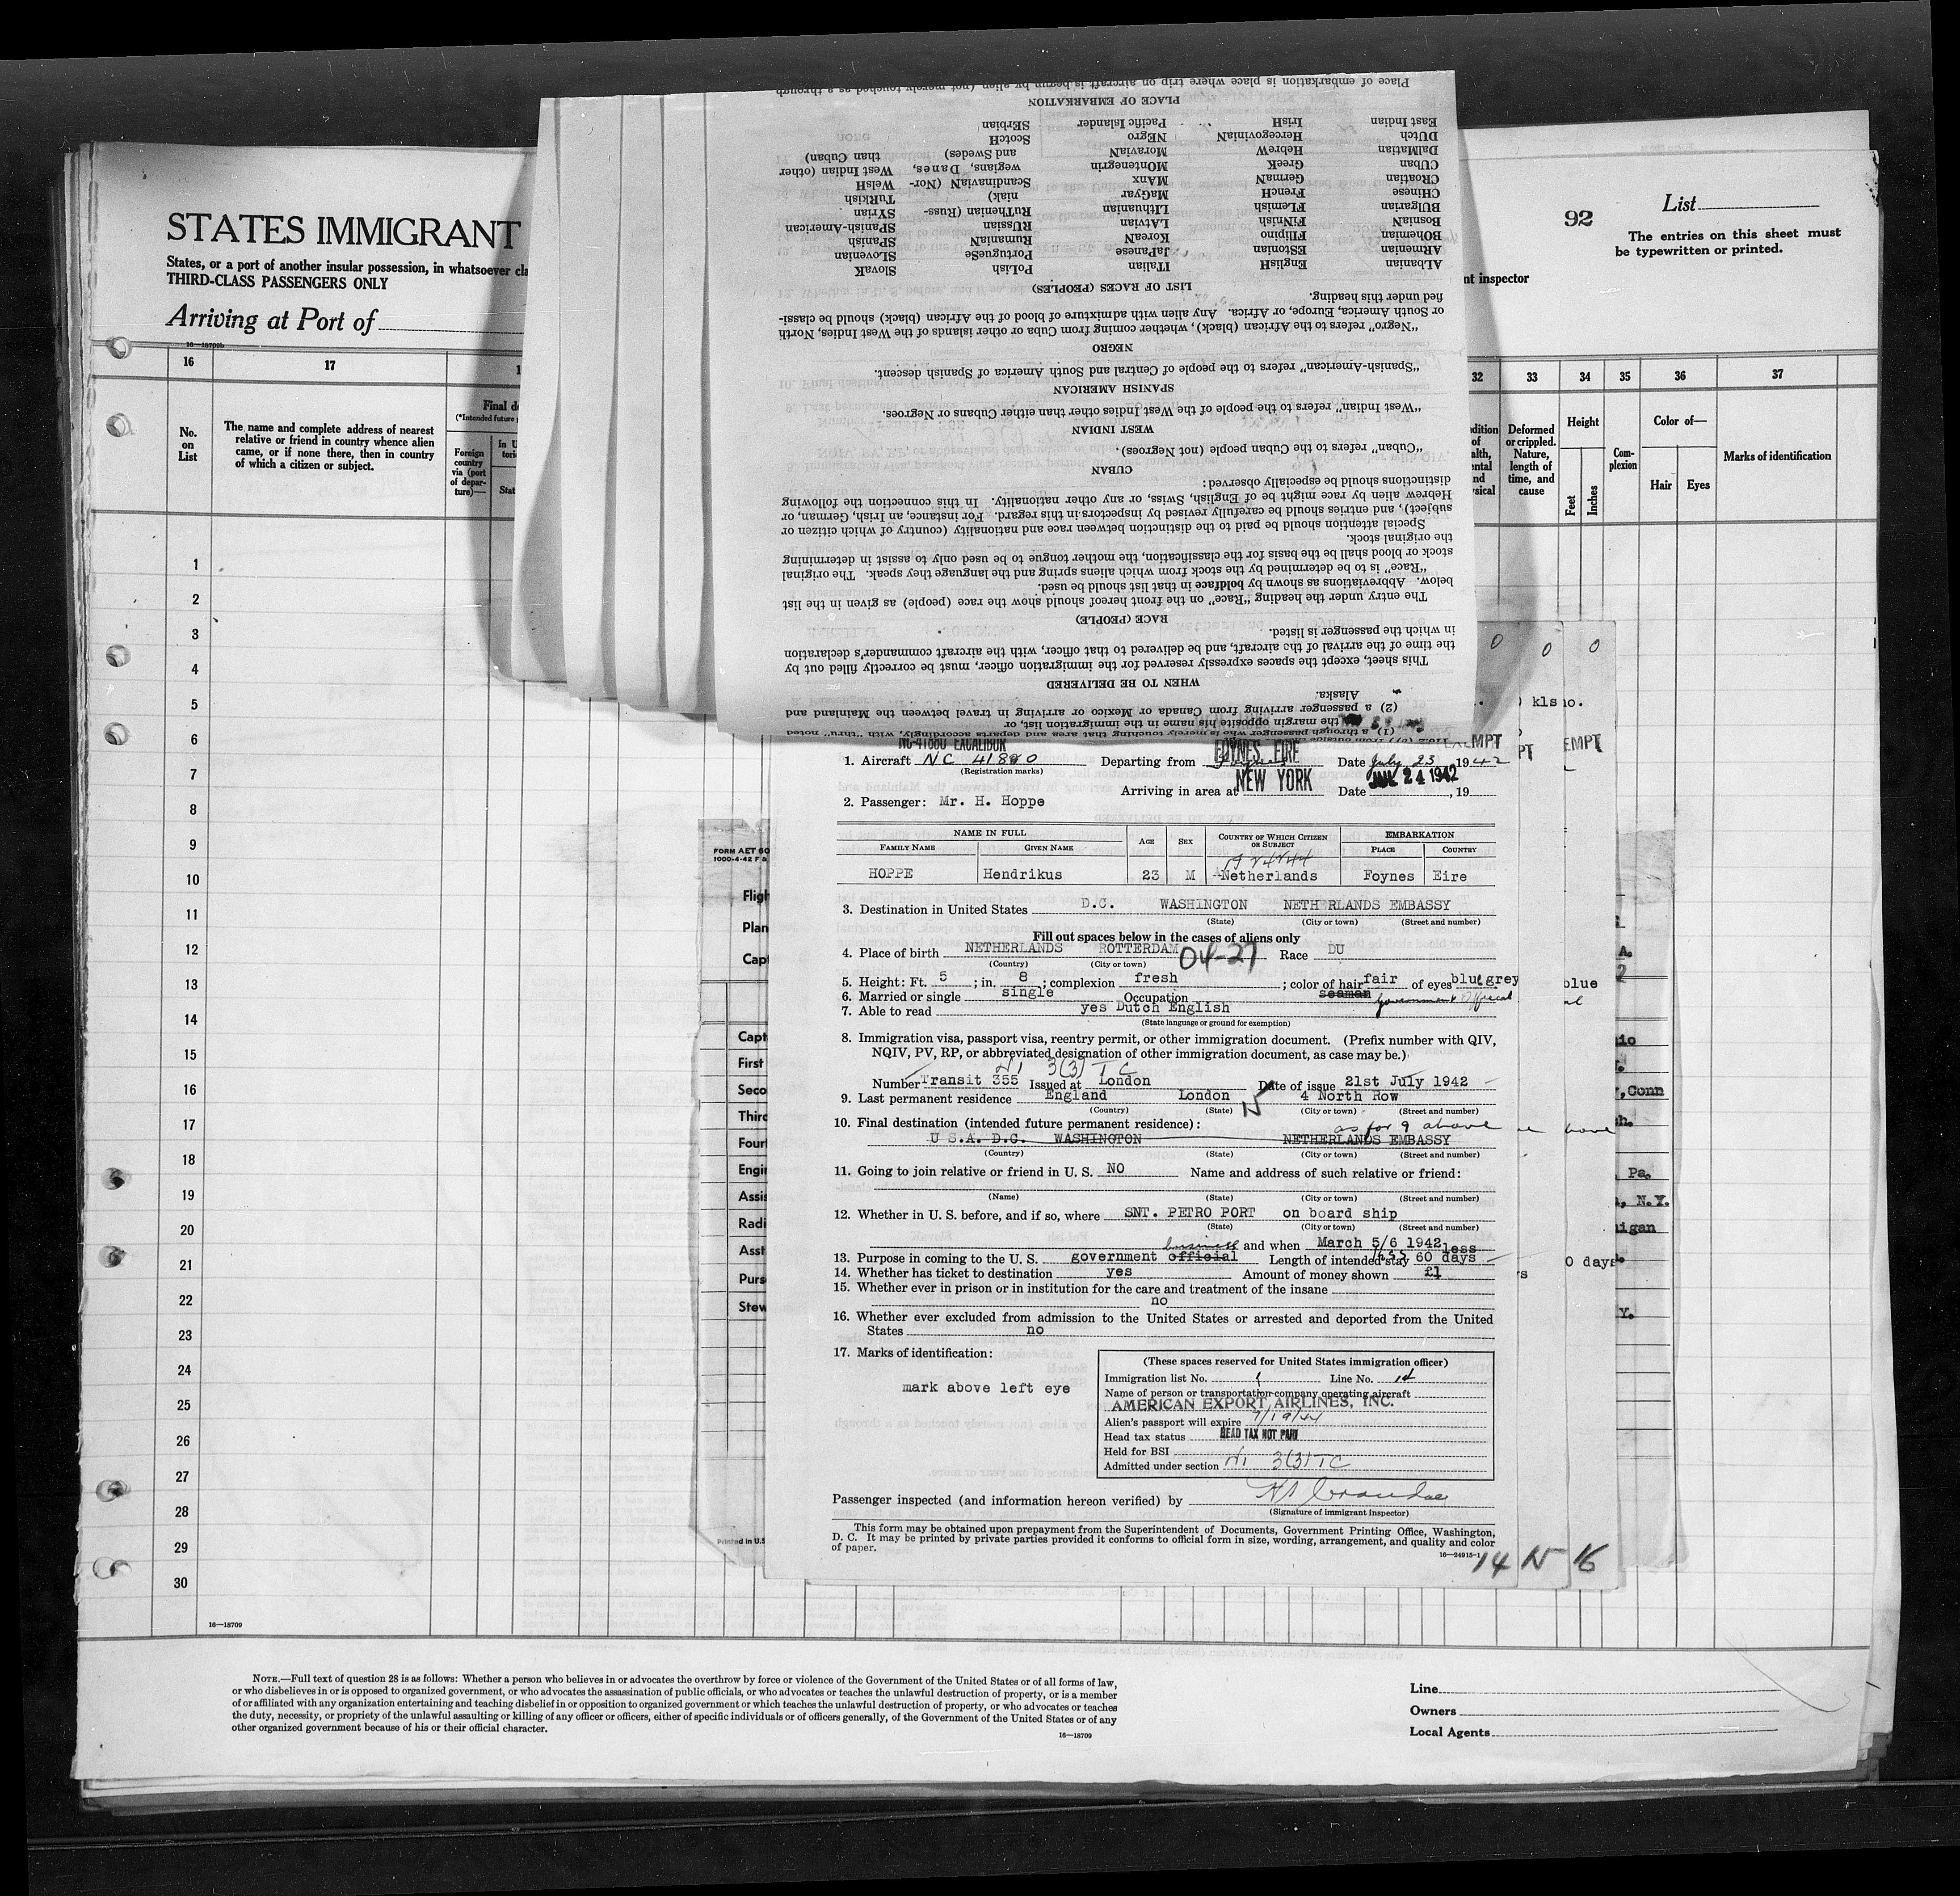 STATES IMMIGRANT
States, or a port of another insular possession, in whatsoever
THIRD-CLASS PASSENGERS ONLY
Arriving at Port of
16—18709b
92
List
The entries on this sheet must
be typewritten or printed.
inspector
16
17
32
33
34
35
36
37
No.
on
List
The name and complete address of nearest
relative or friend in country whence alien
came, or if none there, then in country
of which a citizen or subject.
Final
(*Intended future
Foreign
country
via (port
of depar-
ture)—
Deformed
or crippled.
Nature,
length of
time, and
cause
Height
Feet
Inches
Com-
plexion
Color of—
Hair
Eyes
Marks of identification
1
2
3
4
5
6
7
8
9
10
11
12
13
14
15
16
17
18
19
20
21
22
23
24
25
26
27
28
29
30
16—18709
Place of embarkation is place where trip on aircraft is begun by alien (not merely touched as a through
PLACE OF EMBARKATION
East Indian
IrisH
Pacific Islander
SErbian
DUtch
HercegoviniaN
NEgro
ScotcH
DalMatian
HebreW
MoraviaN
and Swedes)
than Cuban)
CUban
GreeK
MOntenegrin
wegians, Danes,
West Indian (other
CRoatian
GermaN
MAnx
ScandinaviaN (Nor-
WelsH
CHinese
FrencH
MaGyar
niak)
TuRkish
BUlgarian
FLemish
LIthuanian
RuThenian (Russ-
SYrian
BosniaN
FiNnish
LAtvian
RUssian
SPanish-American
BOhemian
FIlipino
KoreaN
RumaniaN
SPanish
ARmenian
EStonian
JaPanese
PortugueSe
SLovenian
ALbanian
EnglisH
ITalian
PoLish
SlovaK
LIST OF RACES (PEOPLES)
fied under this heading.
or South America, Europe, or Africa. Any alien with admixture of blood of the African (black) should be classi-
"Negro" refers to the African (black), whether coming from Cuba or other islands of the West Indies, North
NEGRO
"Spanish-American" refers to the people of Central and South America of Spanish descent.
SPANISH AMERICAN
"West Indian" refers to the people of the West Indies other than either Cubans or Negroes.
WEST INDIAN
"Cuban" refers to the Cuban people (not Negroes).
CUBAN
distinctions should be especially observed:
Hebrew alien by race might be of English, Swiss, or any other nationality. In this connection the following
subject), and entries should be carefully revised by inspectors in this regard. For instance, an Irish, German, or
Special attention should be paid to the distinction between race and nationality (country of which citizen or
the original stock.
stock or blood shall be the basis for the classification, the mother tongue to be used only to assist in determining
"Race" is to be determined by the stock from which aliens spring and the language they speak. The original
below. Abbreviations as shown by boldface in that list should be used.
The entry under the heading "Race" on the front hereof should show the race (people) as given in the list
RACE (PEOPLE)
in which the passenger is listed.
the time of the arrival of the aircraft, and be delivered to that officer, with the aircraft commander's declaration
This sheet, except the spaces expressly reserved for the immigration officer, must be correctly filled out by
WHEN TO BE DELIVERED
Alaska.
(2) a passenger arriving from Canada or Mexico or arriving in travel between the Mainland and
the margin opposite his name in the immigration list, or
(1) a through passenger who is merely touching that area and departs accordingly, with "thru" noted
NC-41880 EXCALIBUR
FOYNES EIRE
1. Aircraft NC 41880 Departing from Date July 23, 1942
(Registration marks)
Arriving in area at NEW YORK Date JUL 24 1942, 19
2. Passenger: Mr. H. Hoppe
NAME IN FULL
FAMILY NAME
GIVEN NAME
AGE
SEX
COUNTRY OF WHICH CITIZEN
OR SUBJECT
EMBARKATION
PLACE
COUNTRY
HOPPE Hendrikus 23 M Netherlands Foynes Eire
3. Destination in United States D.C. WASHINGTON NETH RLANDS EMBASSY
(State) (City or town) (Street and number)
Fill out spaces below in the cases of aliens only
4. Place of birth NETHERLANDS ROTTERDAM 04-27 Race DU
(Country) (City or town)
5. Height: Ft. 5; in. 8; complexion fresh; color of hair fair of eyes blue grey
6. Married or single single Occupation seaman government Official
7. Able to read yes Dutch English
(State language or ground for exemption)
8. Immigration visa, passport visa, reentry permit, or other immigration document. (Prefix number with QIV,
NQIV, PV, RP, or abbreviated designation of other immigration document, as case may be.)
3(3) TC
Number Transit 355 Issued at London Date of issue 21st July 1942
9. Last permanent residence England London 4 North Row
(Country) (State) (City or town) (Street and number)
10. Final destination (intended future permanent residence): as for 9 above
U S.A. D.C. WASHINGTON NETHERLANDS EMBASSY
(Country) (State) (City or town) (Street and number)
11. Going to join relative or friend in U. S. NO Name and address of such relative or friend:
(Name) (State) (City or town) (Street and number)
12. Whether in U. S. before, and if so, where SNT. PETRO PORT on board ship
(State) (City or town) (Street and number)
and when March 5/6 1942
business less
13. Purpose in coming to the U. S. government official Length of intended stay less 60 days
14. Whether has ticket to destination yes Amount of money shown £1
15. Whether ever in prison or in institution for the care and treatment of the insane
no
16. Whether ever excluded from admission to the United States or arrested and deported from the United
States no
17. Marks of identification:
mark above left eye
(These spaces reserved for United States immigration officer)
Immigration list No. 1 Line No. 14
Name of person or transportation company operating aircraft
AMERICAN EXPORT AIRLINES, INC.
Alien's passport will expire 7/19/44
Head tax status HEAD TAX NOT PAID
Held for BSI
Admitted under section 3(3) TC
Passenger inspected (and information hereon verified) by
(Signature of immigrant inspector)
This form may be obtained upon prepayment from the Superintendent of Documents, Government Printing Office, Washington,
D. C. It may be printed by private parties provided it conforms to official form in size, wording, arrangement, and quality and color
of paper.
16—24915-1
14 15 16
FORM AET 60
1000-4-42 F &
Fligh
Plan
Capt
Capt
First
Seco
Third
Fourt
Engir
Assis
Radi
Asst
Purs
Stew
Printed in U.S
0
0
0
klsno.
EMPT
EMPT
blue
0 days
,Conn
Pa.
N.Y.
igan
Y.
NOTE.—Full text of question 28 is as follows: Whether a person who believes in or advocates the overthrow by force or violence of the Government of the United States or of all forms of law,
or who disbelieves in or is opposed to organized government, or who advocates the assassination of public officials, or who advocates or teaches the unlawful destruction of property, or is a member
of or affiliated with any organization entertaining and teaching disbelief in or opposition to organized government or which teaches the unlawful destruction of property, or who advocates or teaches
the duty, necessity, or propriety of the unlawful assaulting or killing of any officer or officers, either of specific individuals or of officers generally, of the Government of the United States or of any
other organized government because of his or their official character.
16—18709
Line
Owners
Local Agents